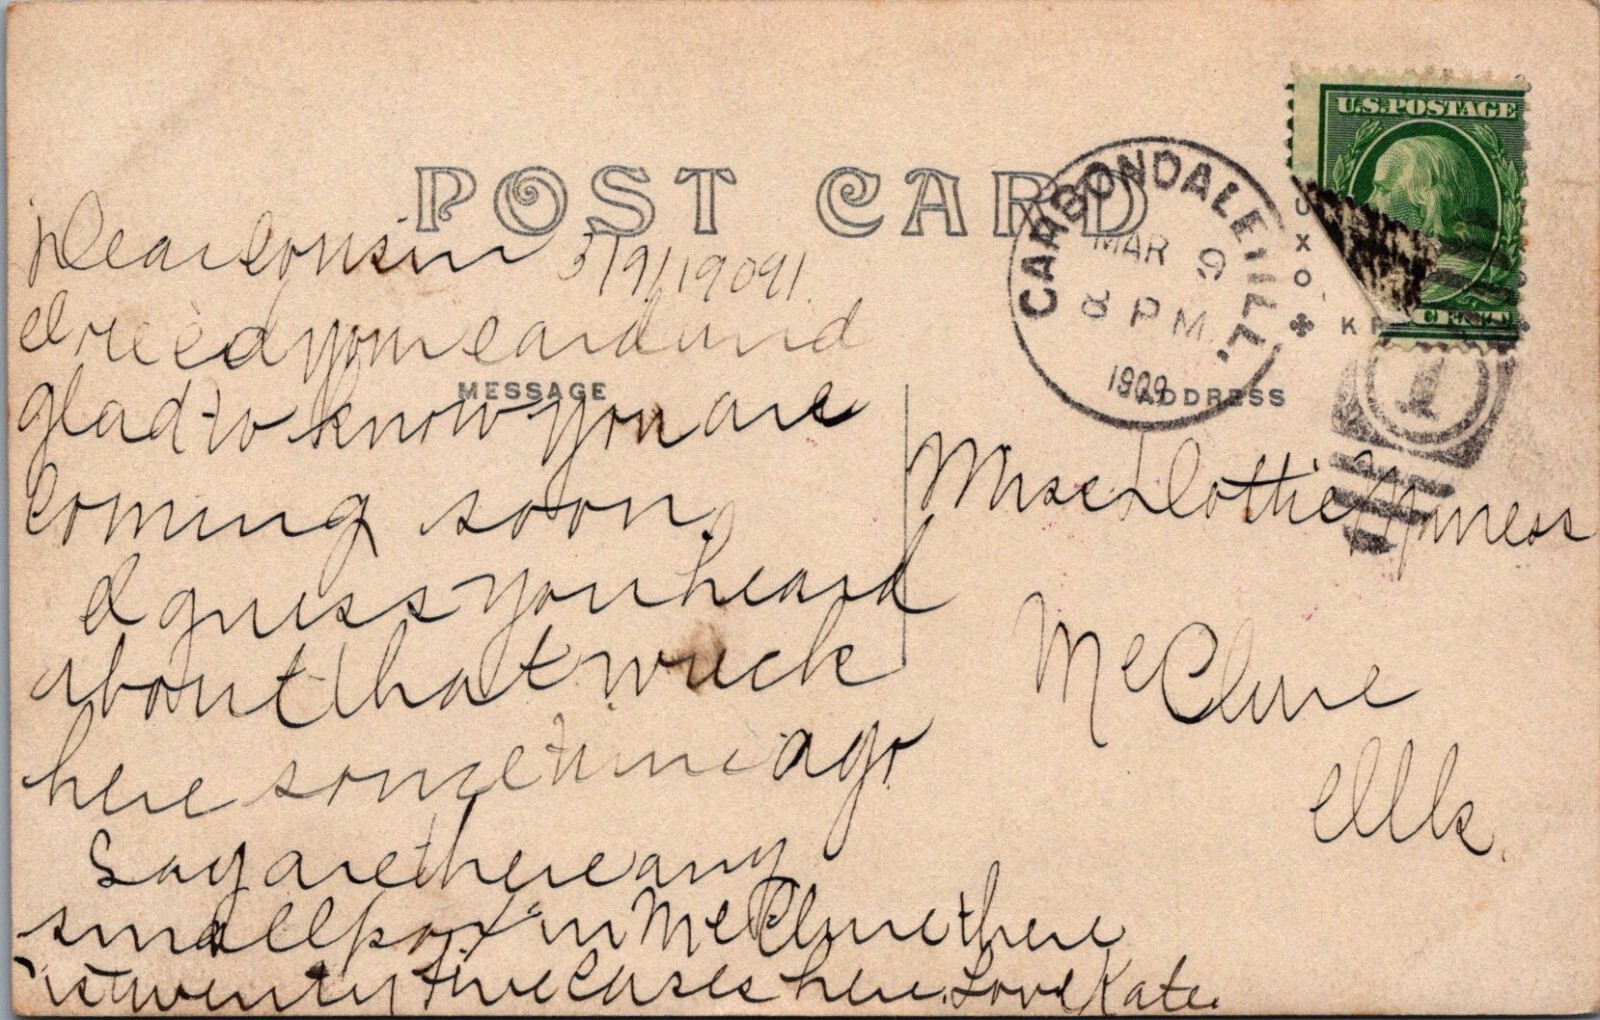 U.S. POSTAGE
POST CARD
CARBONDALE, ILL.
MAR 9
8 PM
1909
Dear Cousin 3/9/1909.
I rec'd your card and
MESSAGE
glad to know you are
coming soon.
I guess you heard
about that wreck
here sometime ago
Say are there any
small pox in McClure there
is twenty five cases here. Love Kate.
ADDRESS
Miss Dottie
McClure
Ills.
1